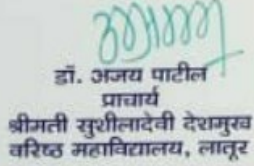 डॉ. अजय पाटील
प्राचार्य
श्रीमती सुशीलादेवी देशमुख
वरिष्ठ महाविद्यालय, लातूर